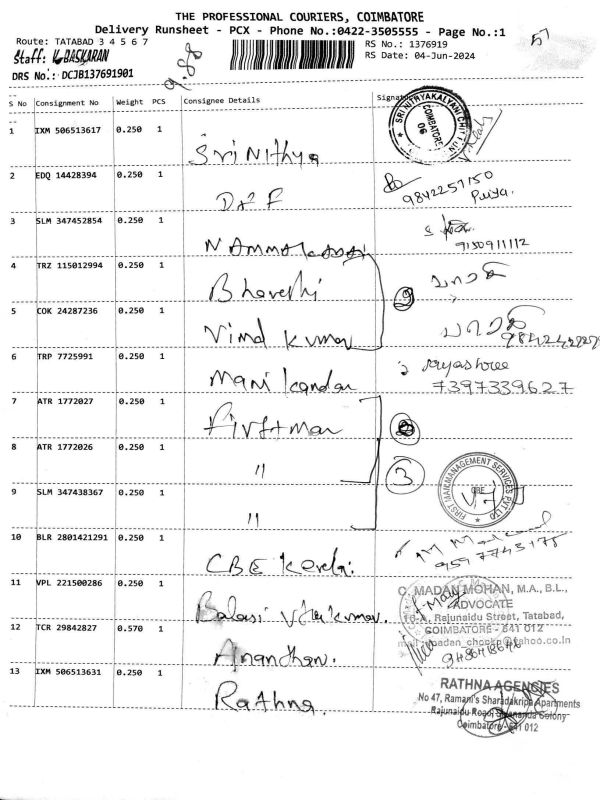 THE PROFESSIONAL COURIERS, COIMBATORE
Delivery Runsheet - PCX - Phone No.:0422-3505555 - Page No.:1
Route: TATABAD 3 4 5 6 7
RS No.: 1376919
Staff: K BASKARAN
9.88
RS Date: 04-Jun-2024
57
DRS No.: DCJB137691901
S No Consignment No Weight PCS Consignee Details Signature
1 IXM 506513617 0.250 1 Sri Nithya
SRI NITHYAKALYANI CHIT FUN
COIMBATORE
06
2 EDQ 14428394 0.250 1 9842257150
Priya.
3 SLM 347452854 0.250 1
9150911112
4 TRZ 115012994 0.250 1 Bharathi
5 COK 24287236 0.250 1 Vimal Kumar
6 TRP 7725991 0.250 1 Mani kandan Jayashree
7397339627
7 ATR 1772027 0.250 1 First man
8 ATR 1772026 0.250 1 "
3
9 SLM 347438367 0.250 1 "
FIRST MAN MANAGEMENT SERVICES PVT LTD
CBE
10 BLR 2801421291 0.250 1 CBE Kerala.
11 VPL 221500286 0.250 1 Balasi
C. MADAN MOHAN, M.A., B.L.,
ADVOCATE
10-A, Rajunaidu Street, Tatabad,
COIMBATORE - 641 012
12 TCR 29842827 0.570 1 Anandhan.
13 IXM 506513631 0.250 1 Rathna
RATHNA AGENCIES
No 47, Ramani's Sharadakripa Apartments
Rajunaidu Road, Sivananda Colony
Coimbatore - 641 012